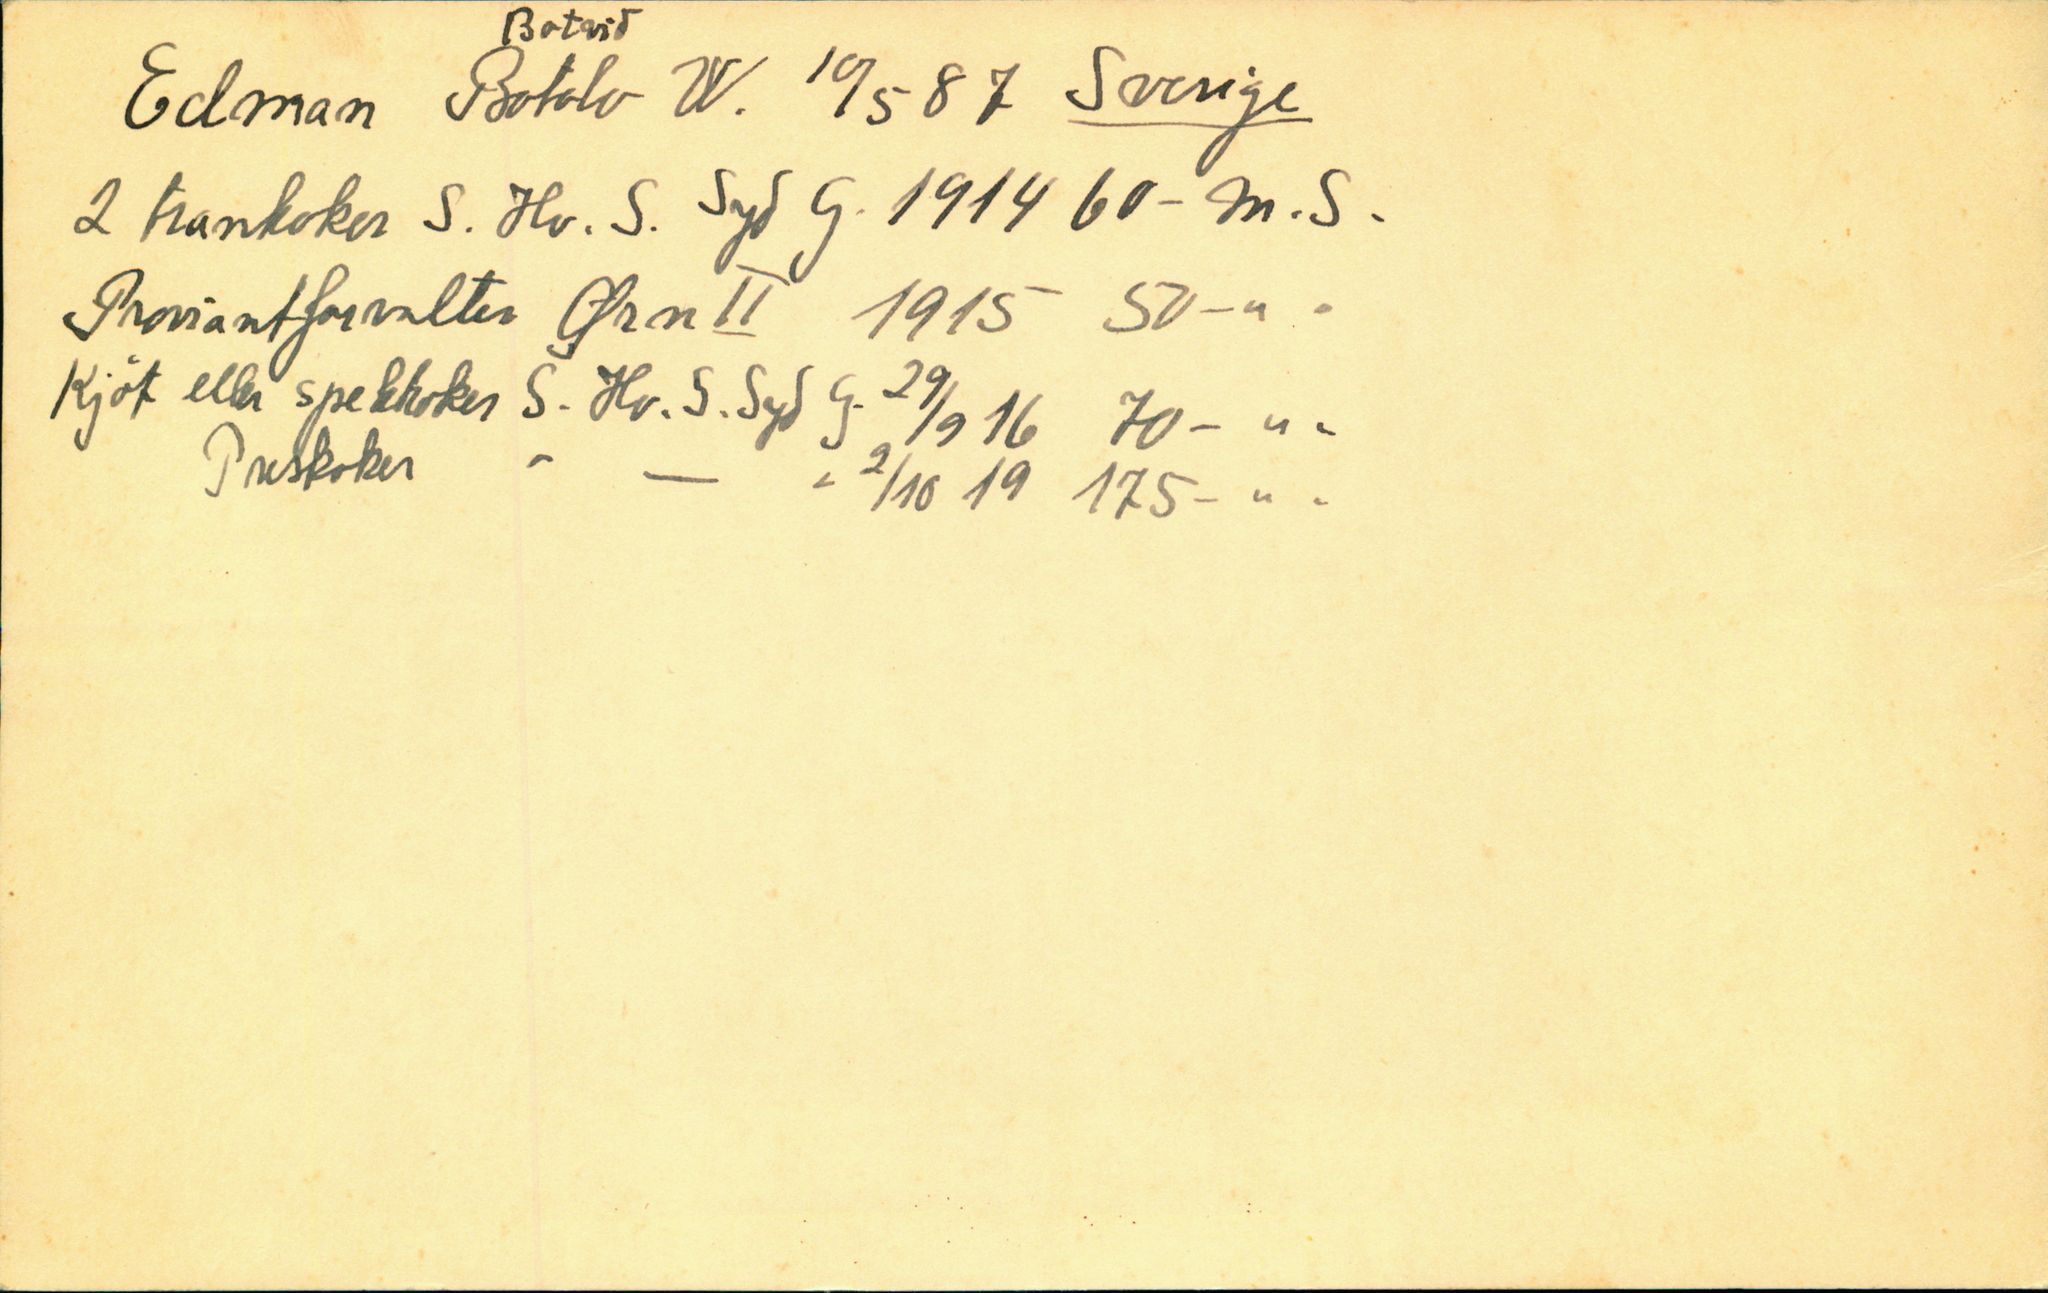 Botvid
Edman Botolv W. 10/5 87 Sverige
2 trankoker S. Hv. S. Syd G. 1914 60 - m.S.
Proviantforvalter Ørn II 1915 50 - " "
Kjöt eller spekkoker S. Hv. S. Syd G. 29/9 16 70 - " "
Preskoker " — " 2/10 19 175 - " "